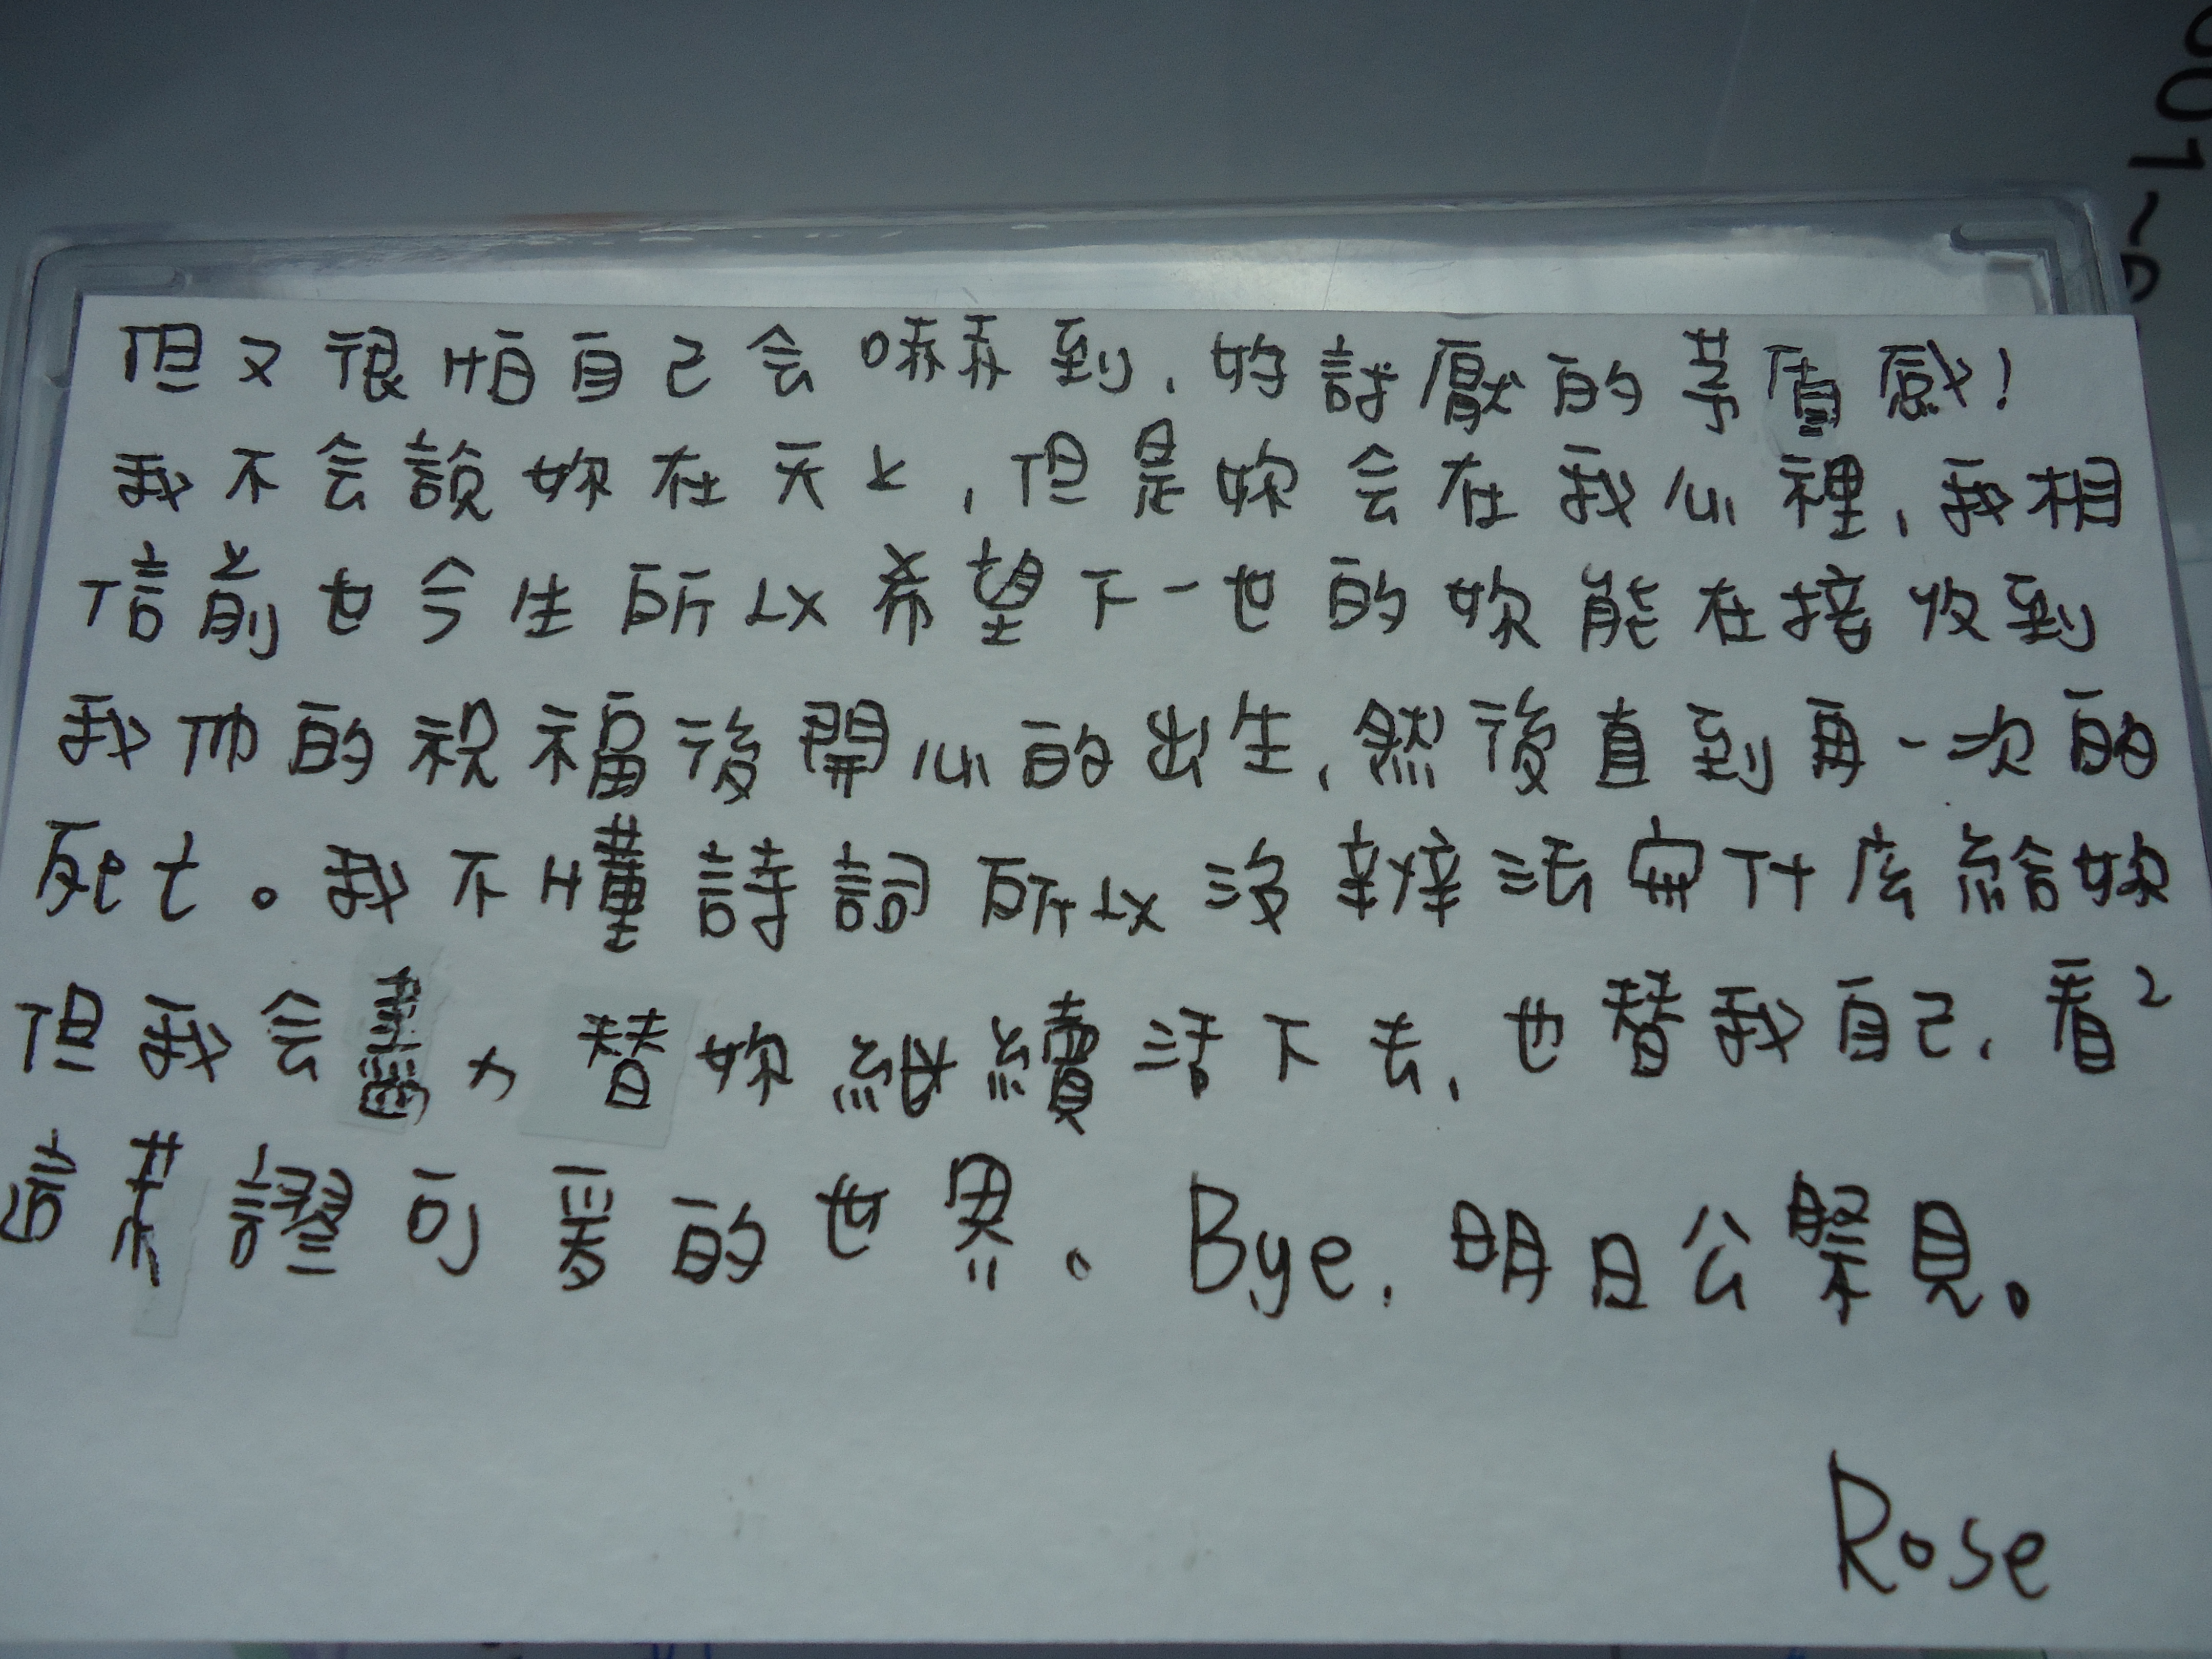 但又很怕自己会嚇到，好討厭的矛盾感！
我不会說妳在天上，但是妳会在我心裡，我相
信前世今生所以希望下一世的妳能在接收到
我们的祝福後開心的出生，然後直到再一次的
死亡。我不懂詩詞所以沒辦法寫什麼給妳
但我会盡力替妳繼續活下去，也替我自己，看2
這荒謬可愛的世界。Bye，明日公祭見。
Rose
001~